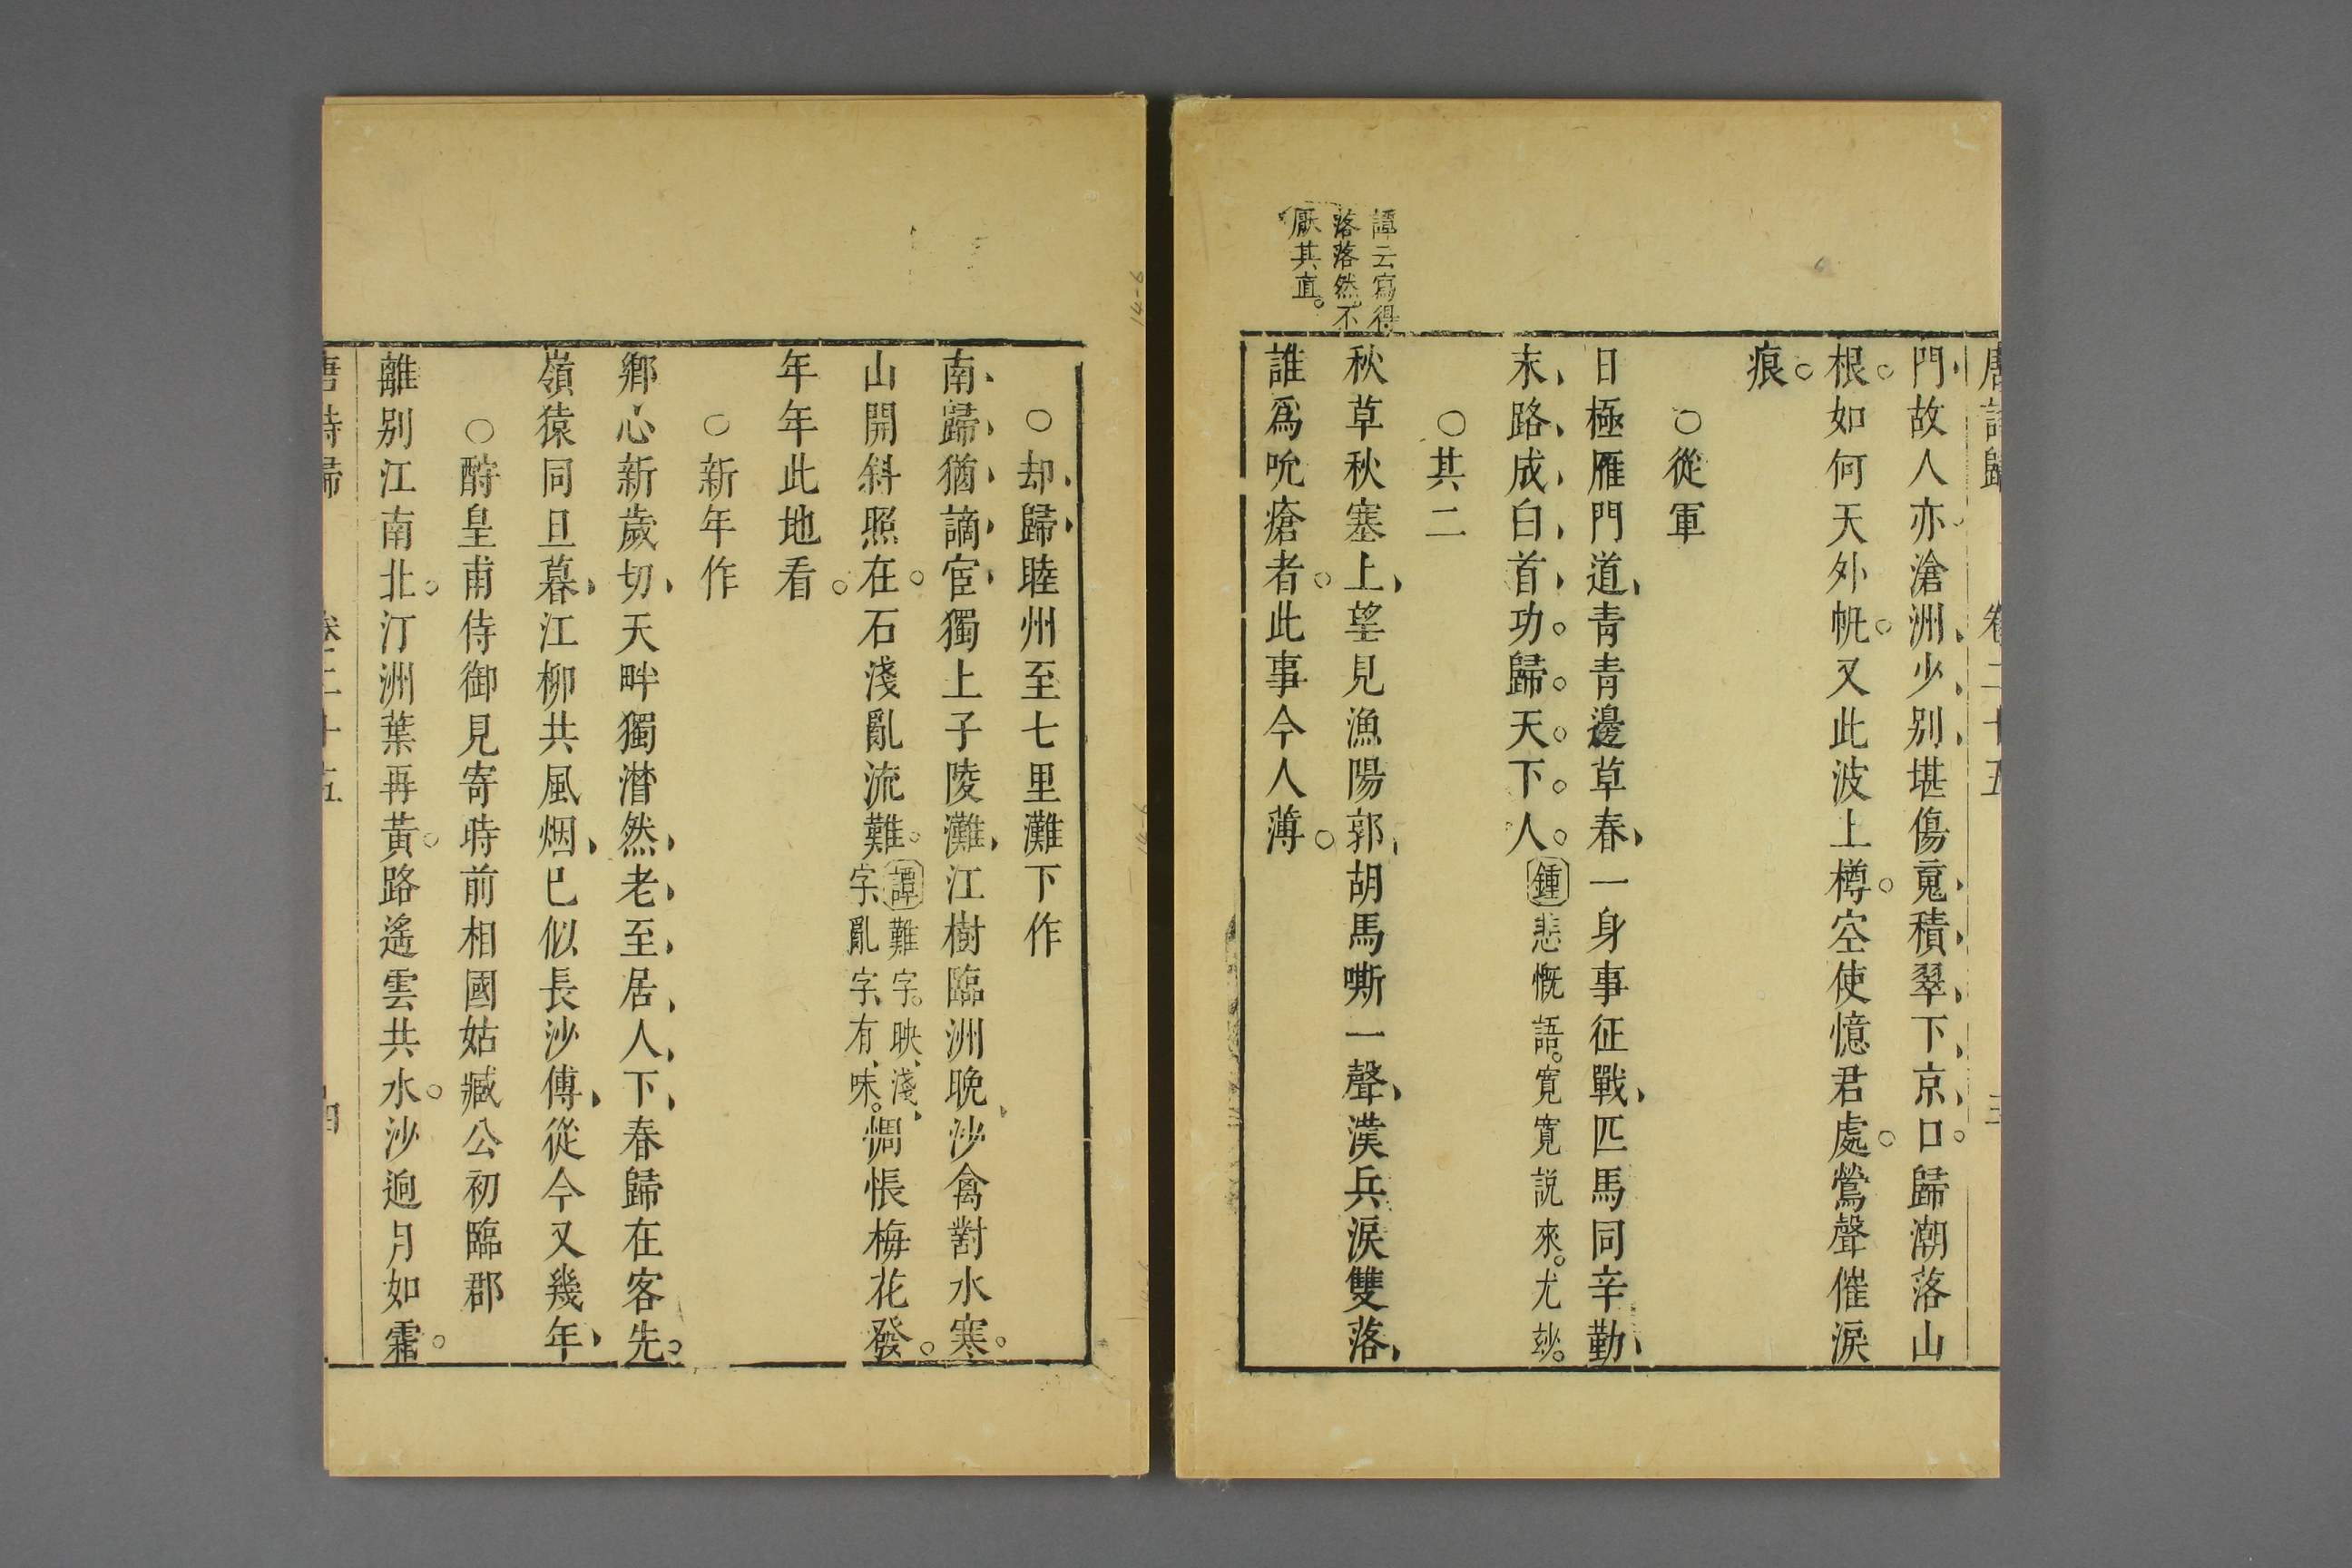 唐詩歸 卷二十五 三
門故人亦滄洲少别堪傷䰟積翠下京口歸潮落山
根如何天外帆又此波上樽空使憶君處鶯聲催淚
痕
○從軍
日極雁門道青青邊草春一身事征戰匹馬同辛勤
末路成白首功歸天下人鍾悲慨語寬寬説來尤玅
○其二
譚云寫得
落落然不
厭其直
秋草秋塞上望見漁陽郭胡馬嘶一聲漢兵淚雙落
誰爲吮瘡者此事今人薄
○却歸睦州至七里灘下作
南歸猶謫宦獨上子陵灘江樹臨洲晩沙禽對水寒
山開斜照在石淺亂流難譚難字映淺
字亂字有味惆悵梅花發
年年此地看
○新年作
鄉心新歲切天畔獨潸然老至居人下春歸在客先
嶺猿同旦暮江柳共風烟已似長沙傅從今又幾年
○酧皇甫侍御見寄時前相國姑臧公初臨郡
離别江南北汀洲葉再黃路遙雲共水沙逈月如霜
唐詩歸 卷二十五 四